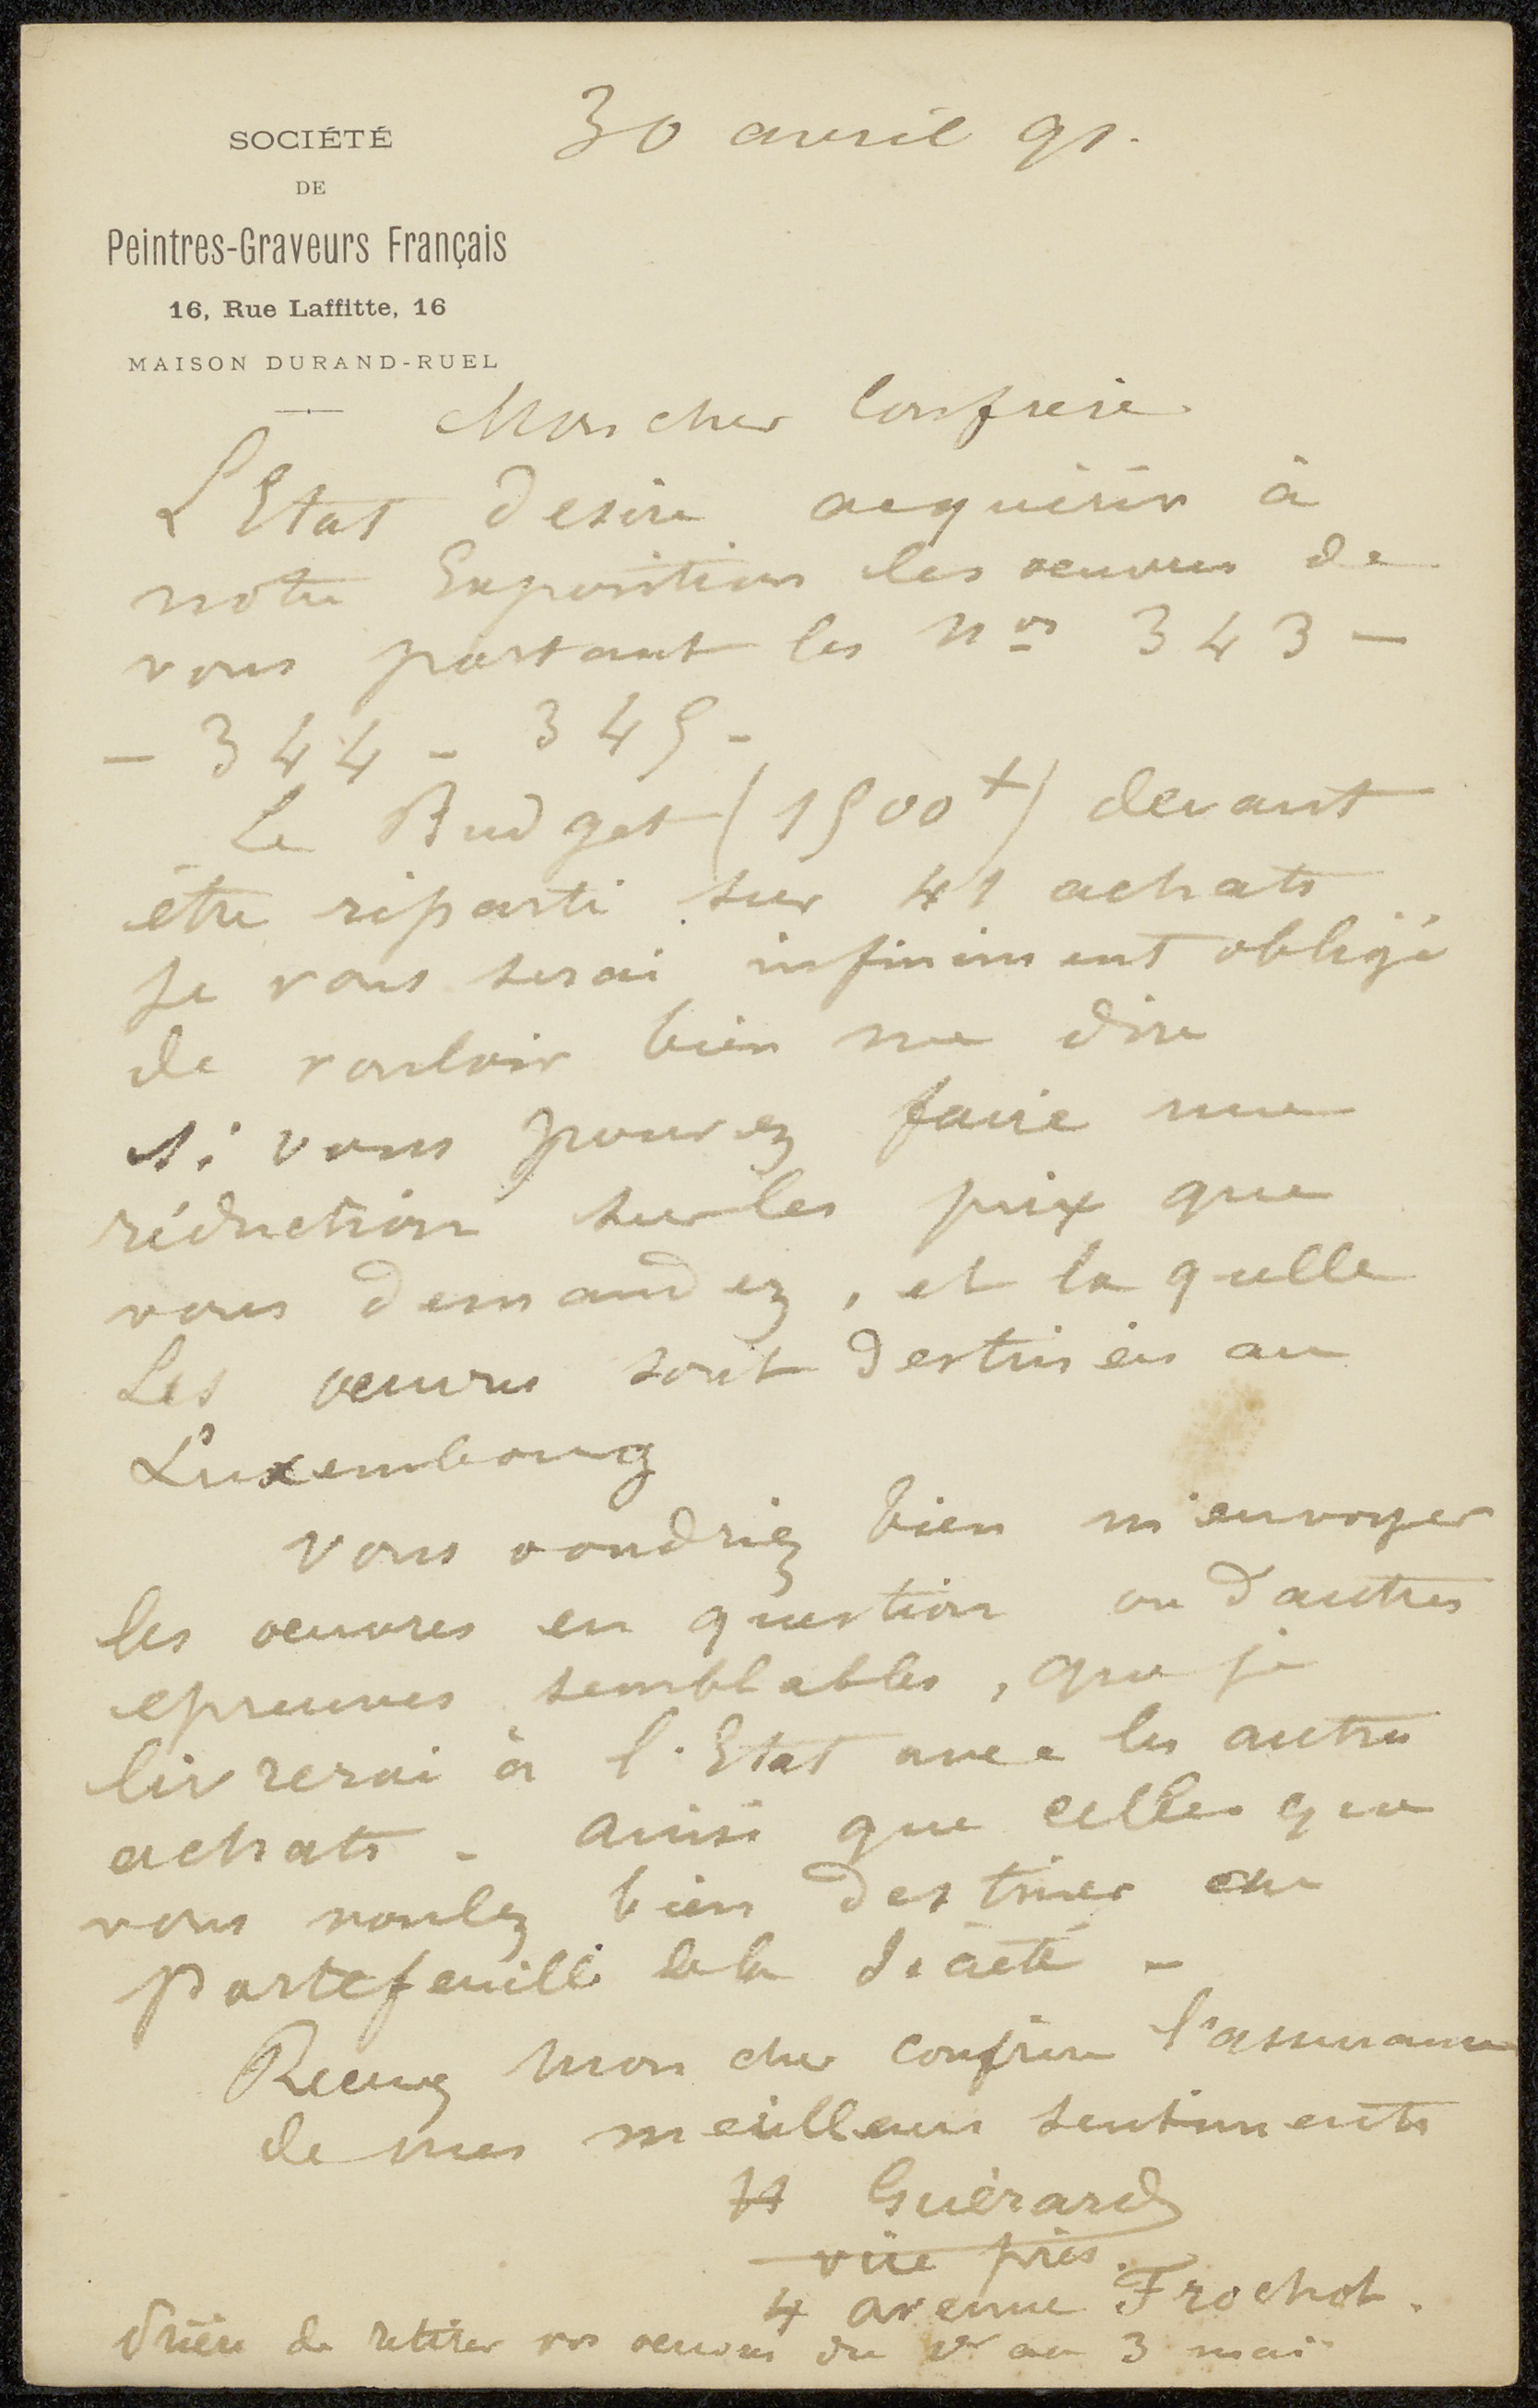 SOCIÉTÉ
DE
Peintres-Graveurs Français
16, Rue Laffitte, 16
MAISON DURAND-RUEL
30 avril 91.
Mon cher Confrère.
L'Etat desire acquérir à
notre Exposition les oeuvres de
vous portant les Nos 343 —
— 344 - 345 -
Le Budget (1500 f) devant
être réparti sur 41 achats
je vous serai infiniment obligé
de vouloir bien me dire
si vous pouvez faire une
réduction sur les prix que
vous demandez, et laquelle
Les oeuvres sont destinées au
Luxembourg
Vous voudriez bien m'envoyer
les oeuvres en question ou d'autres
epreuves semblables, que je
livrerai à l'Etat avec les autres
achats - ainsi que celles que
vous voulez bien destiner au
portefeuille de la Société -
Recevez mon cher confrère l'assurance
de mes meilleurs sentiments
H Guérard
vice prés.
4 avenue Frochot.
Prière de retirer vos oeuvres du 1er au 3 mai